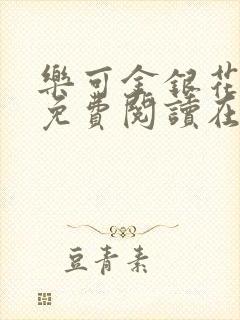 樂可金銀花
免費閱讀在
豆青素